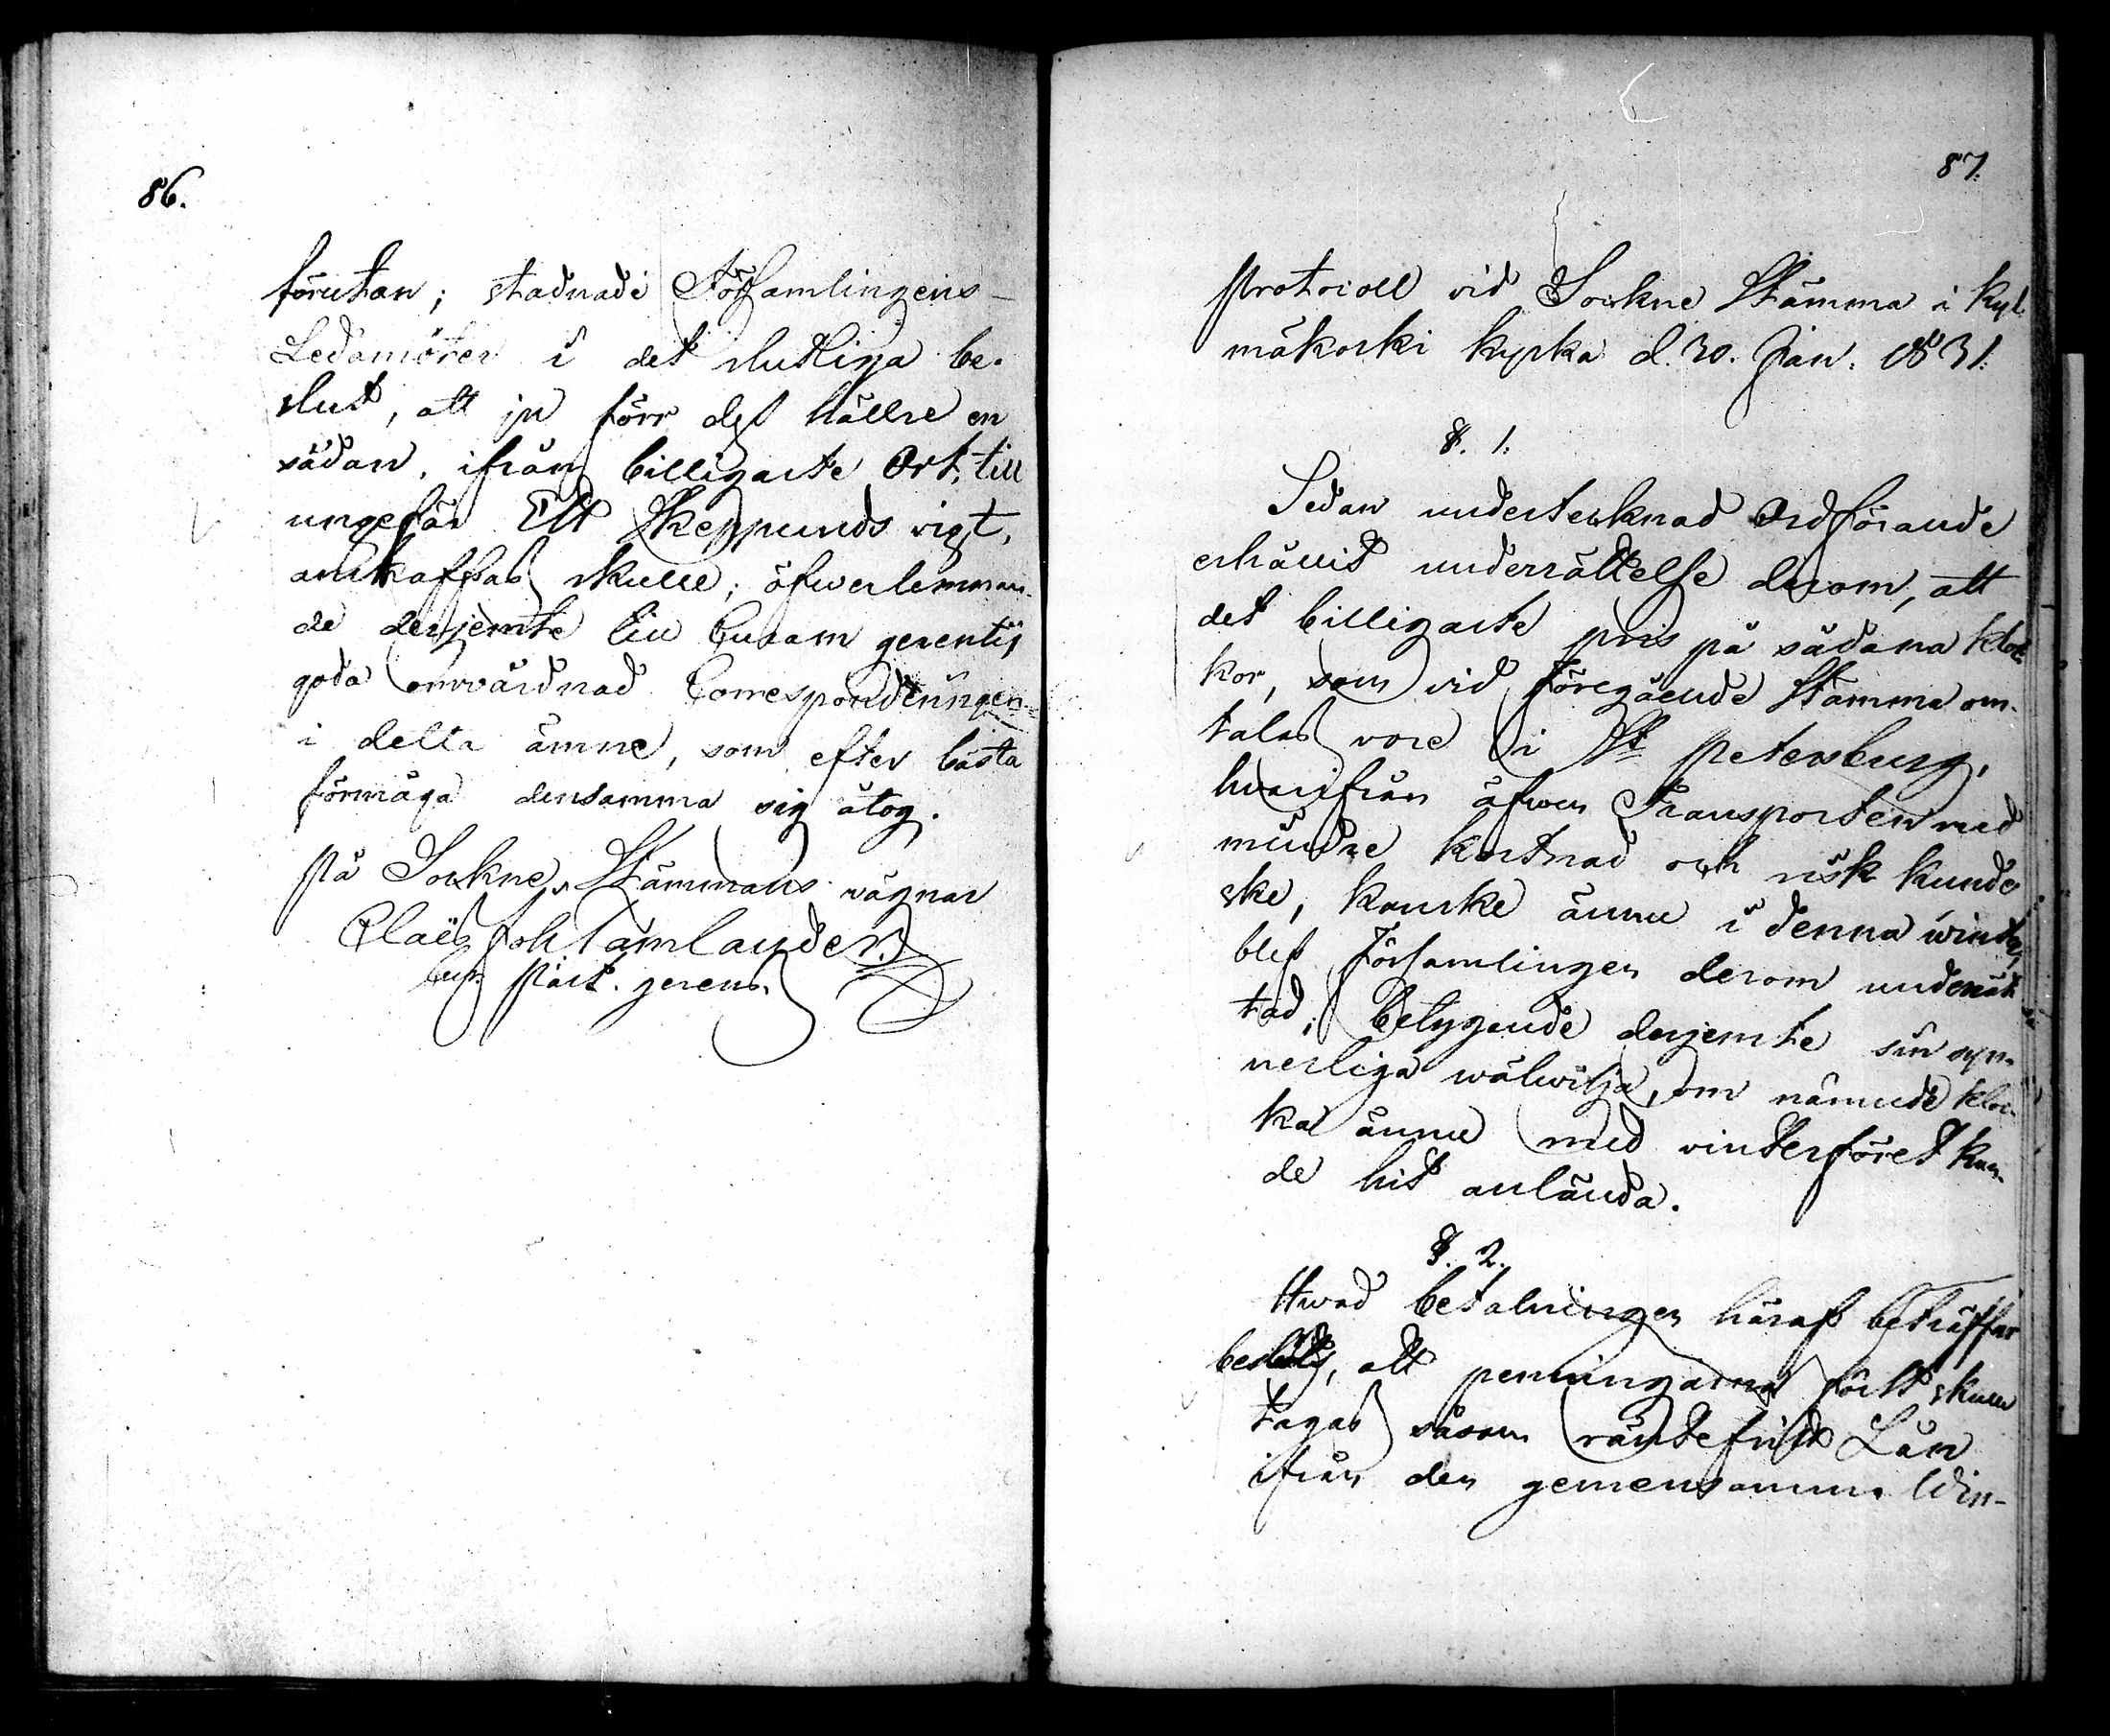 86.
förutan; stadnade Församlingens
Ledamöter i det slutliga be-
slut, att ju förr dess hällre en
sådan, ifrån billigaste Ort, till
ungefär Ett Skeppunds vigt,
anskaffas skulle; öfwerlemnan-
de derjemte till Curam gerentis
goda omvårdnad Correspondencen
i detta ämne, som efter bästa
förmåga densamma sig åtog.
på Sockne Stämmans vägnar
Claës Joh Tamlander.
Past. gerens.
87.
Protocoll vid Sockne Stämma i Kyl-
mäkoski kyrka d. 30. Jan. 1831.
§. 1.
Sedan undertecknad Ordförande
erhållit underrättelse derom, att
det billigaste pris på sådana kloc-
kor, som vid föregående Stämma om-
talas vore i St Petersburg,
hvarifrån äfwen Transporten med
mindre kostnad och risk kunde
ske, kanske ännu i denna winter,
blef Församlingen derom underrät-
tad; betygande derjemte sin syn-
nerliga wälwilja, om nämnde kloc-
ka ännu med vinterföret kun-
de hit anlända.
§. 2.
Hwad betalningen häraf beträffar
beslöts, att penningarne förtt skulle
tagas såsom räntefritt Lån
ifrån den gemensamma Win-